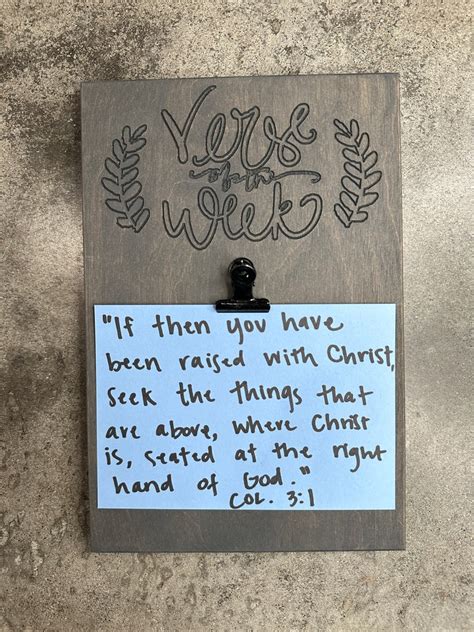 Verse
of the
Week
"If then you have
been raised with Christ,
seek the things that
are above, where Christ
is, seated at the right
hand of God."
COL. 3:1